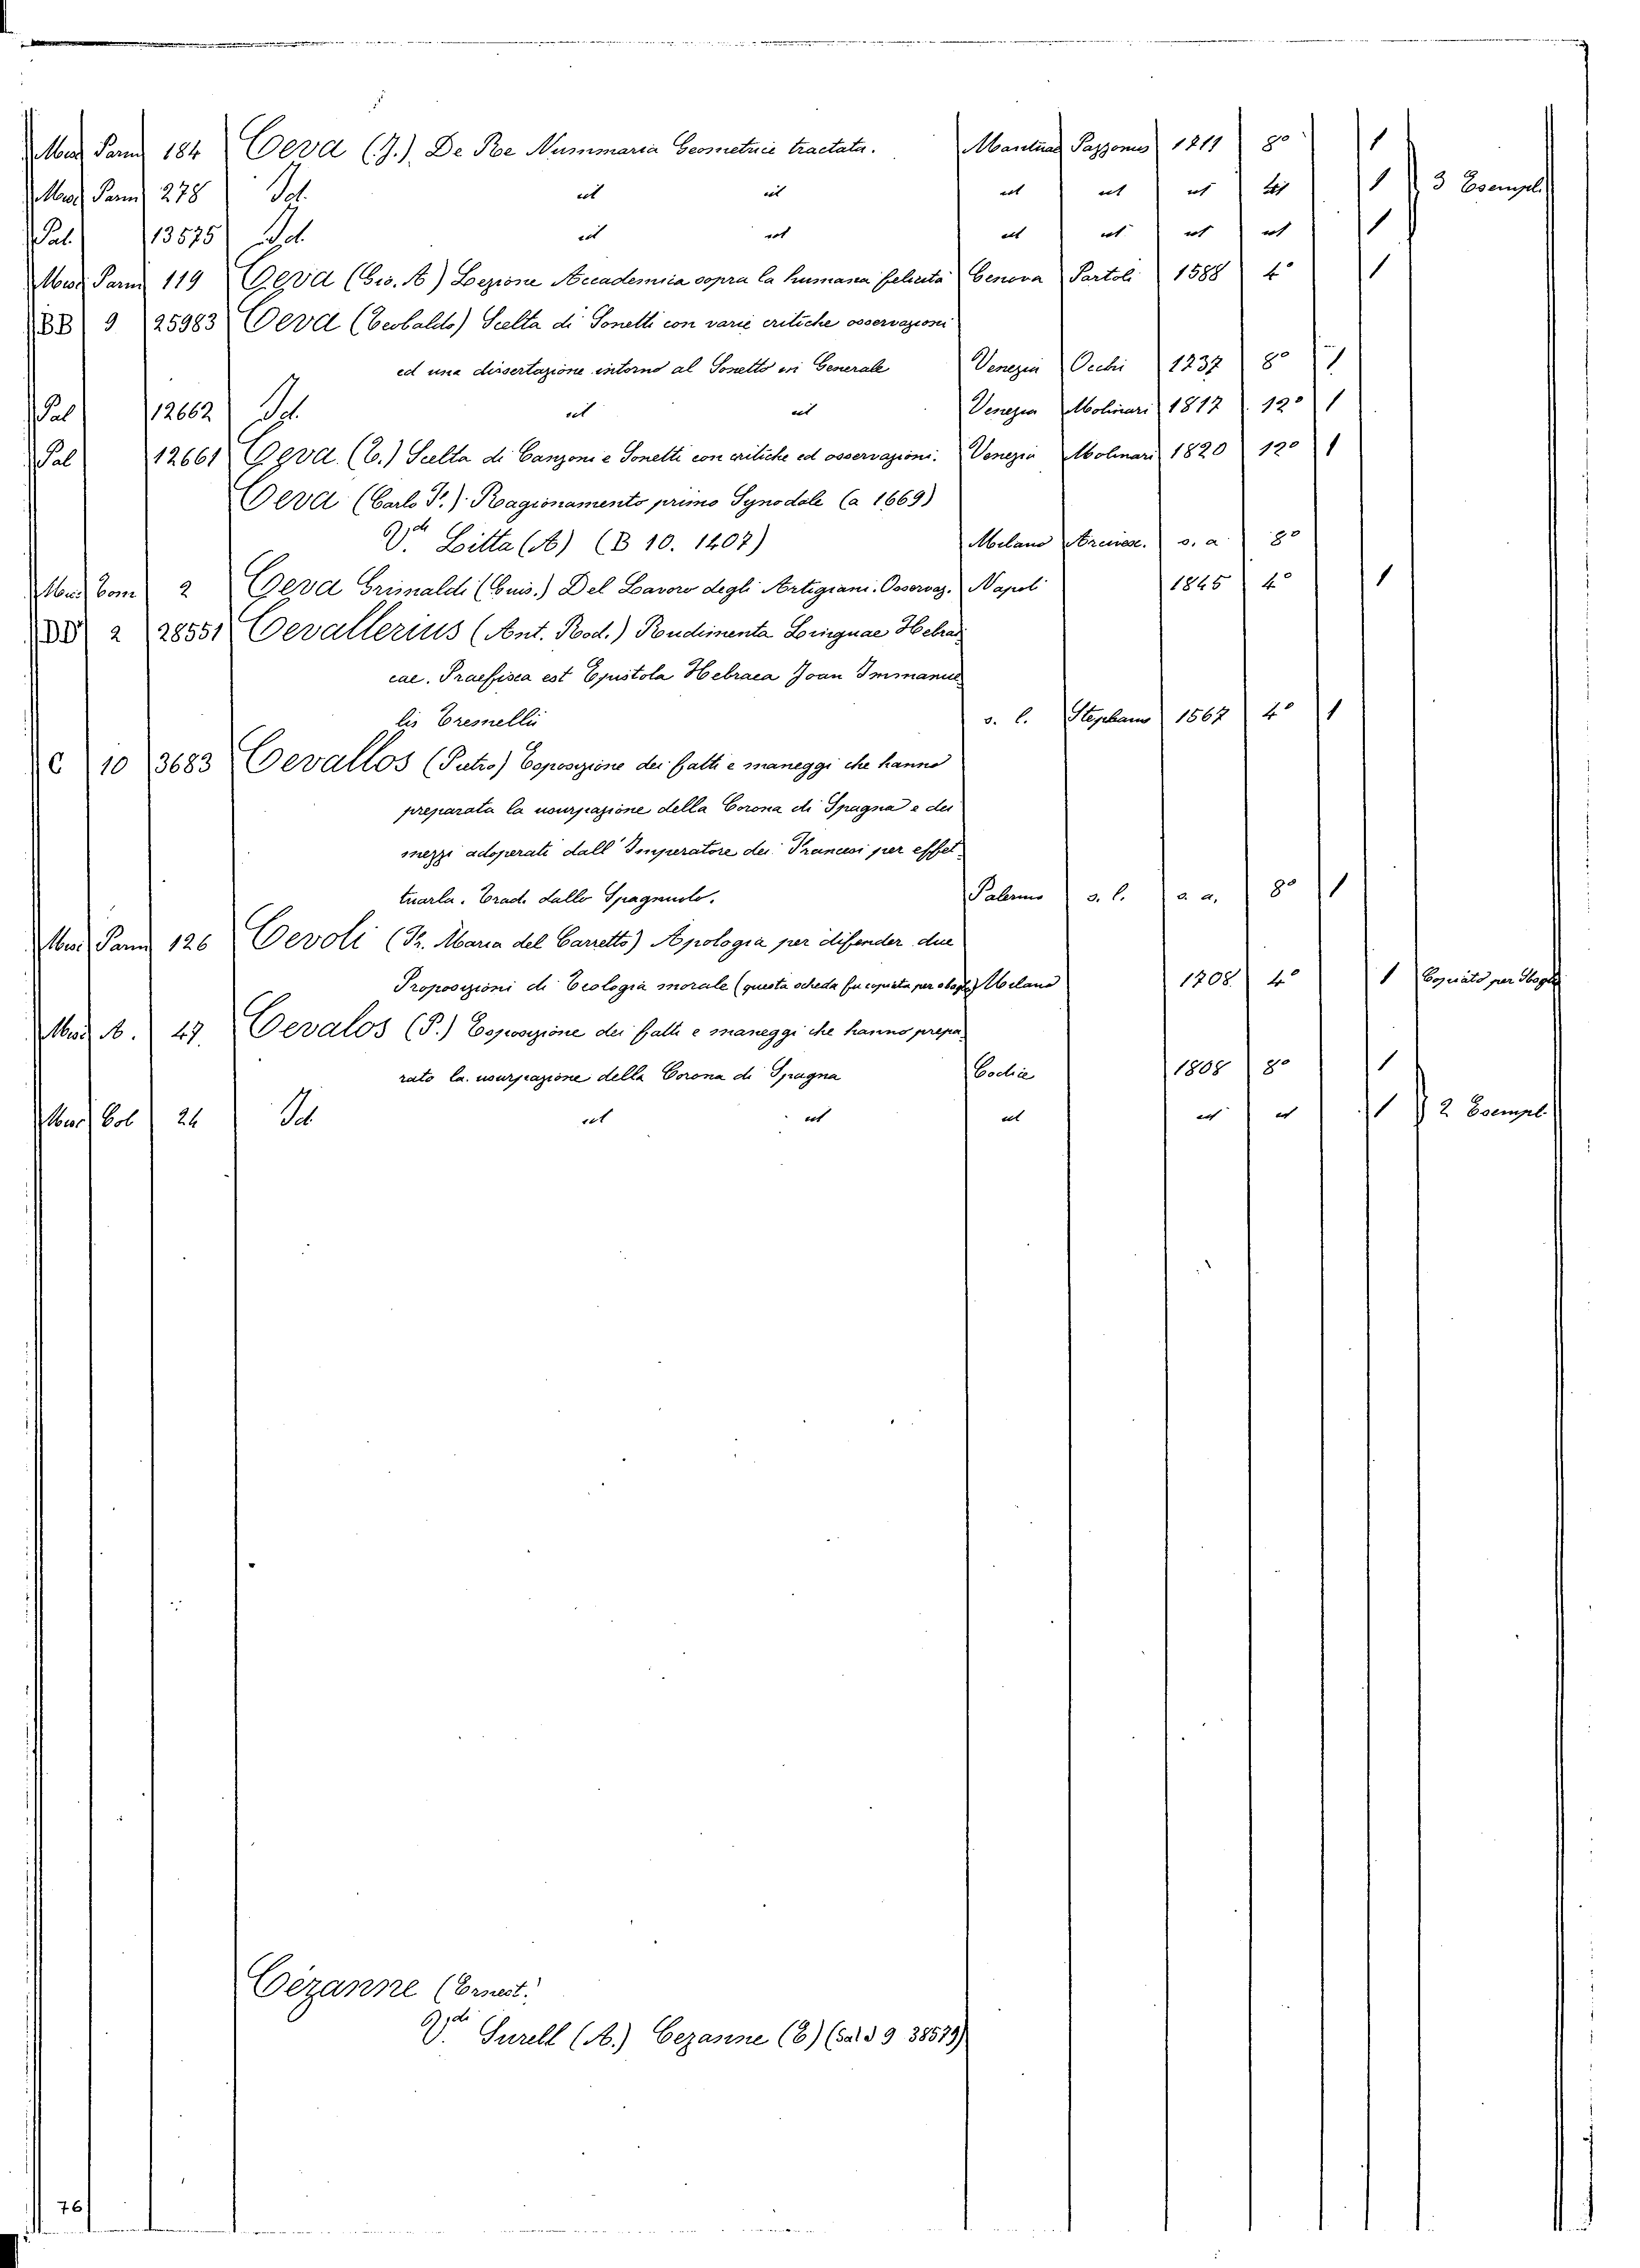 Misc Parm 184 Ceva (J.) De Re Nummaria Geometrice tractata. Mantuae Pazzonus 1711 8° 1
Misc Parm 278 Id. ut ut ut ut ut ut 1 3 Esempl.
Pal. 13575 Id. ut ut ut ut ut ut 1
Misc Parm 119 Ceva (Gio. A) Lezione Accademica sopra la humana felicità Genova Partoli 1588 4° 1
BB 9 25983 Ceva (Teobaldo) Scelta di Sonetti con varie critiche osservazioni
ed una dissertazione intorno al Sonetto in Generale Venezia Occhi 1737 8° 1
Pal 12662 Id. ut ut Venezia Molinari 1817 12° 1
Pal 12661 Ceva (T.) Scelta di Canzoni e Sonetti con critiche ed osservazioni. Venezia Molinari 1820 12° 1
Ceva (Carlo F.) Ragionamento primo Synodale (a 1669)
Vdi Litta (A) (B 10. 1407) Milano s. a 8°
Misc Com 2 Ceva Grimaldi (Gius.) Del Lavoro degli Artigiani. Osservaz. Napoli 1845 4° 1
DD 2 28551 Cevallerius (Ant. Rod.) Rudimenta Linguae Hebrai
cae. Praefixa est Epistola Hebraea Joan Immanue
lis Tremellii s. l. Stephano 1567 4° 1
C 10 3683 Cevallos (Pietro) Esposizione dei fatti e maneggi che hanno
preparata la usurpazione della Corona di Spagna e dei
mezzi adoperati dall' Imperatore dei Francesi per effet
tuarla. Trad. dallo Spagnuolo. Palermo s. l. s. a. 8° 1
Misc Parm 126 Cevoli (Fr. Maria del Carretto) Apologia per difender due
Proposizioni di Teologia morale (questa scheda fu copiata per sbaglio) Milano 1708 4° 1 Copiato per sbaglio
Misc A. 47. Cevalos (P.) Esposizione dei fatti e maneggi che hanno prepa
rato la usurpazione della Corona di Spagna 1808 8° 1
Misc Col 24 Id. ut ut ut ut ut 1 2 Esempl.
Cézanne (Ernest.
Vdi Surell (A.) Cezanne (E) (Sal d 9 38579)
76